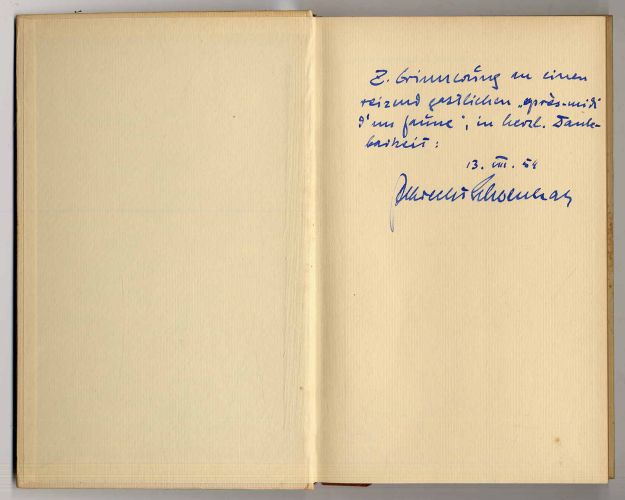 Z. Erinnerung an einen
reizend gastlichen „après-midi
d'un faune", in herzl. Dank-
barkeit:
13. VIII. 54
Albrecht